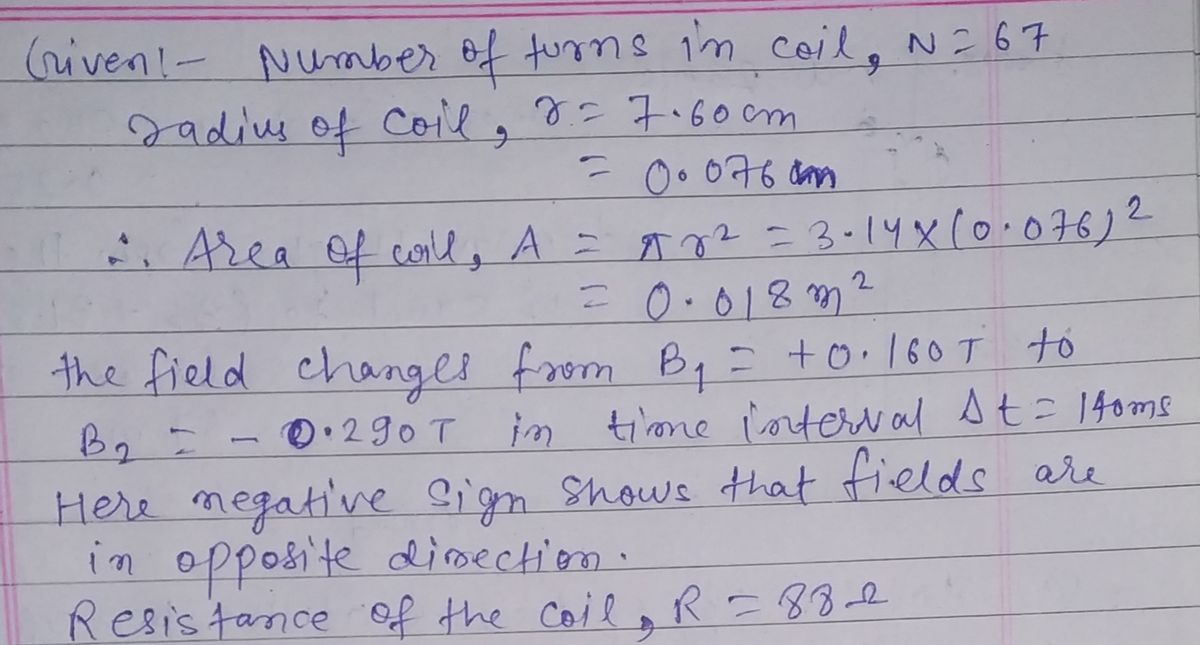 Given:- Number of turns in coil, N = 67
radius of coil, r = 7.60 cm
= 0.076 cm
∴ Area of coil, A = πr² = 3.14 × (0.076)²
= 0.018 m²
the field changes from B₁ = +0.160 T to
B₂ = - 0.290 T in time interval Δt = 140ms
Here negative sign shows that fields are
in opposite direction.
Resistance of the coil, R = 88 Ω